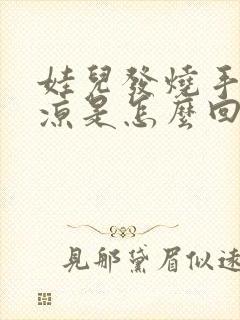 娃兒發燒手
涼是怎麼回
見那黛眉似遠